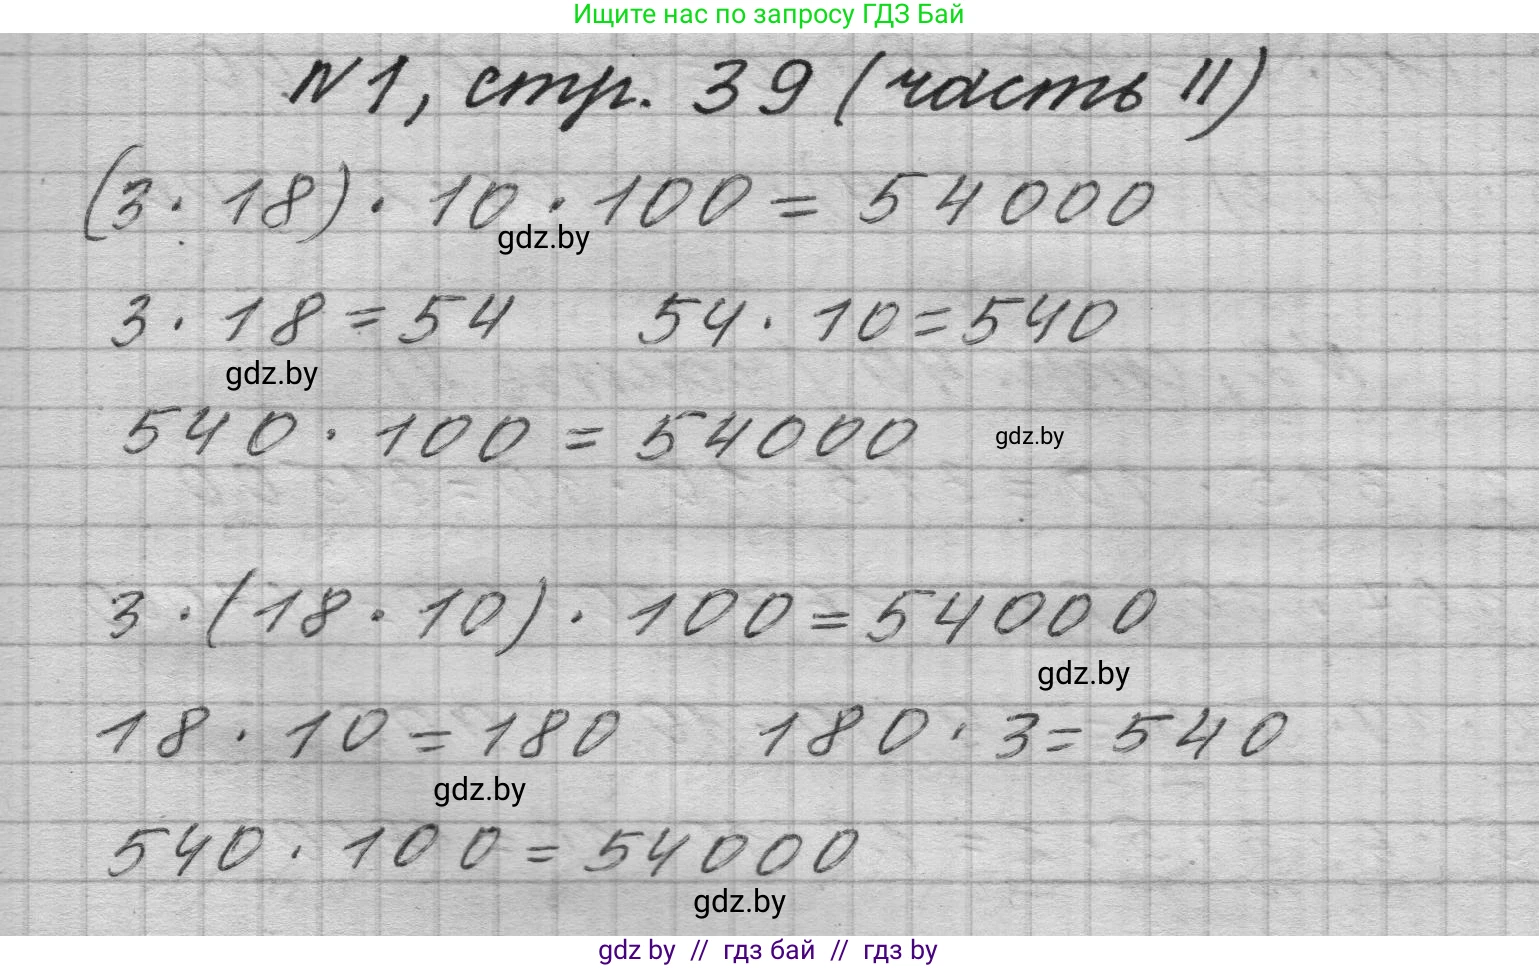 Ищите нас по запросу ГДЗ Бай
№1, стр. 39 (часть II)
(3 · 18) · 10 · 100 = 54000
gdz.by
3 · 18 = 54 54 · 10 = 540
gdz.by
540 · 100 = 54000 gdz.by
3 · (18 · 10) · 100 = 54000
gdz.by
18 · 10 = 180 180 · 3 = 540
gdz.by
540 · 100 = 54000
gdz.by
gdz by // гдз бай // гдз by